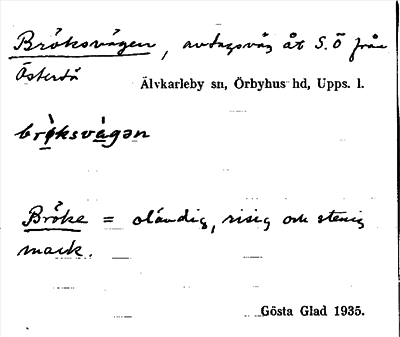 Bröksvägen, avtagsväg åt S.Ö från
Österdä
Älvkarleby sn, Örbyhus hd, Upps. l.
brö̀ksvä̀gən
Bröke = oländig, risig och stenig
mark.
Gösta Glad 1935.